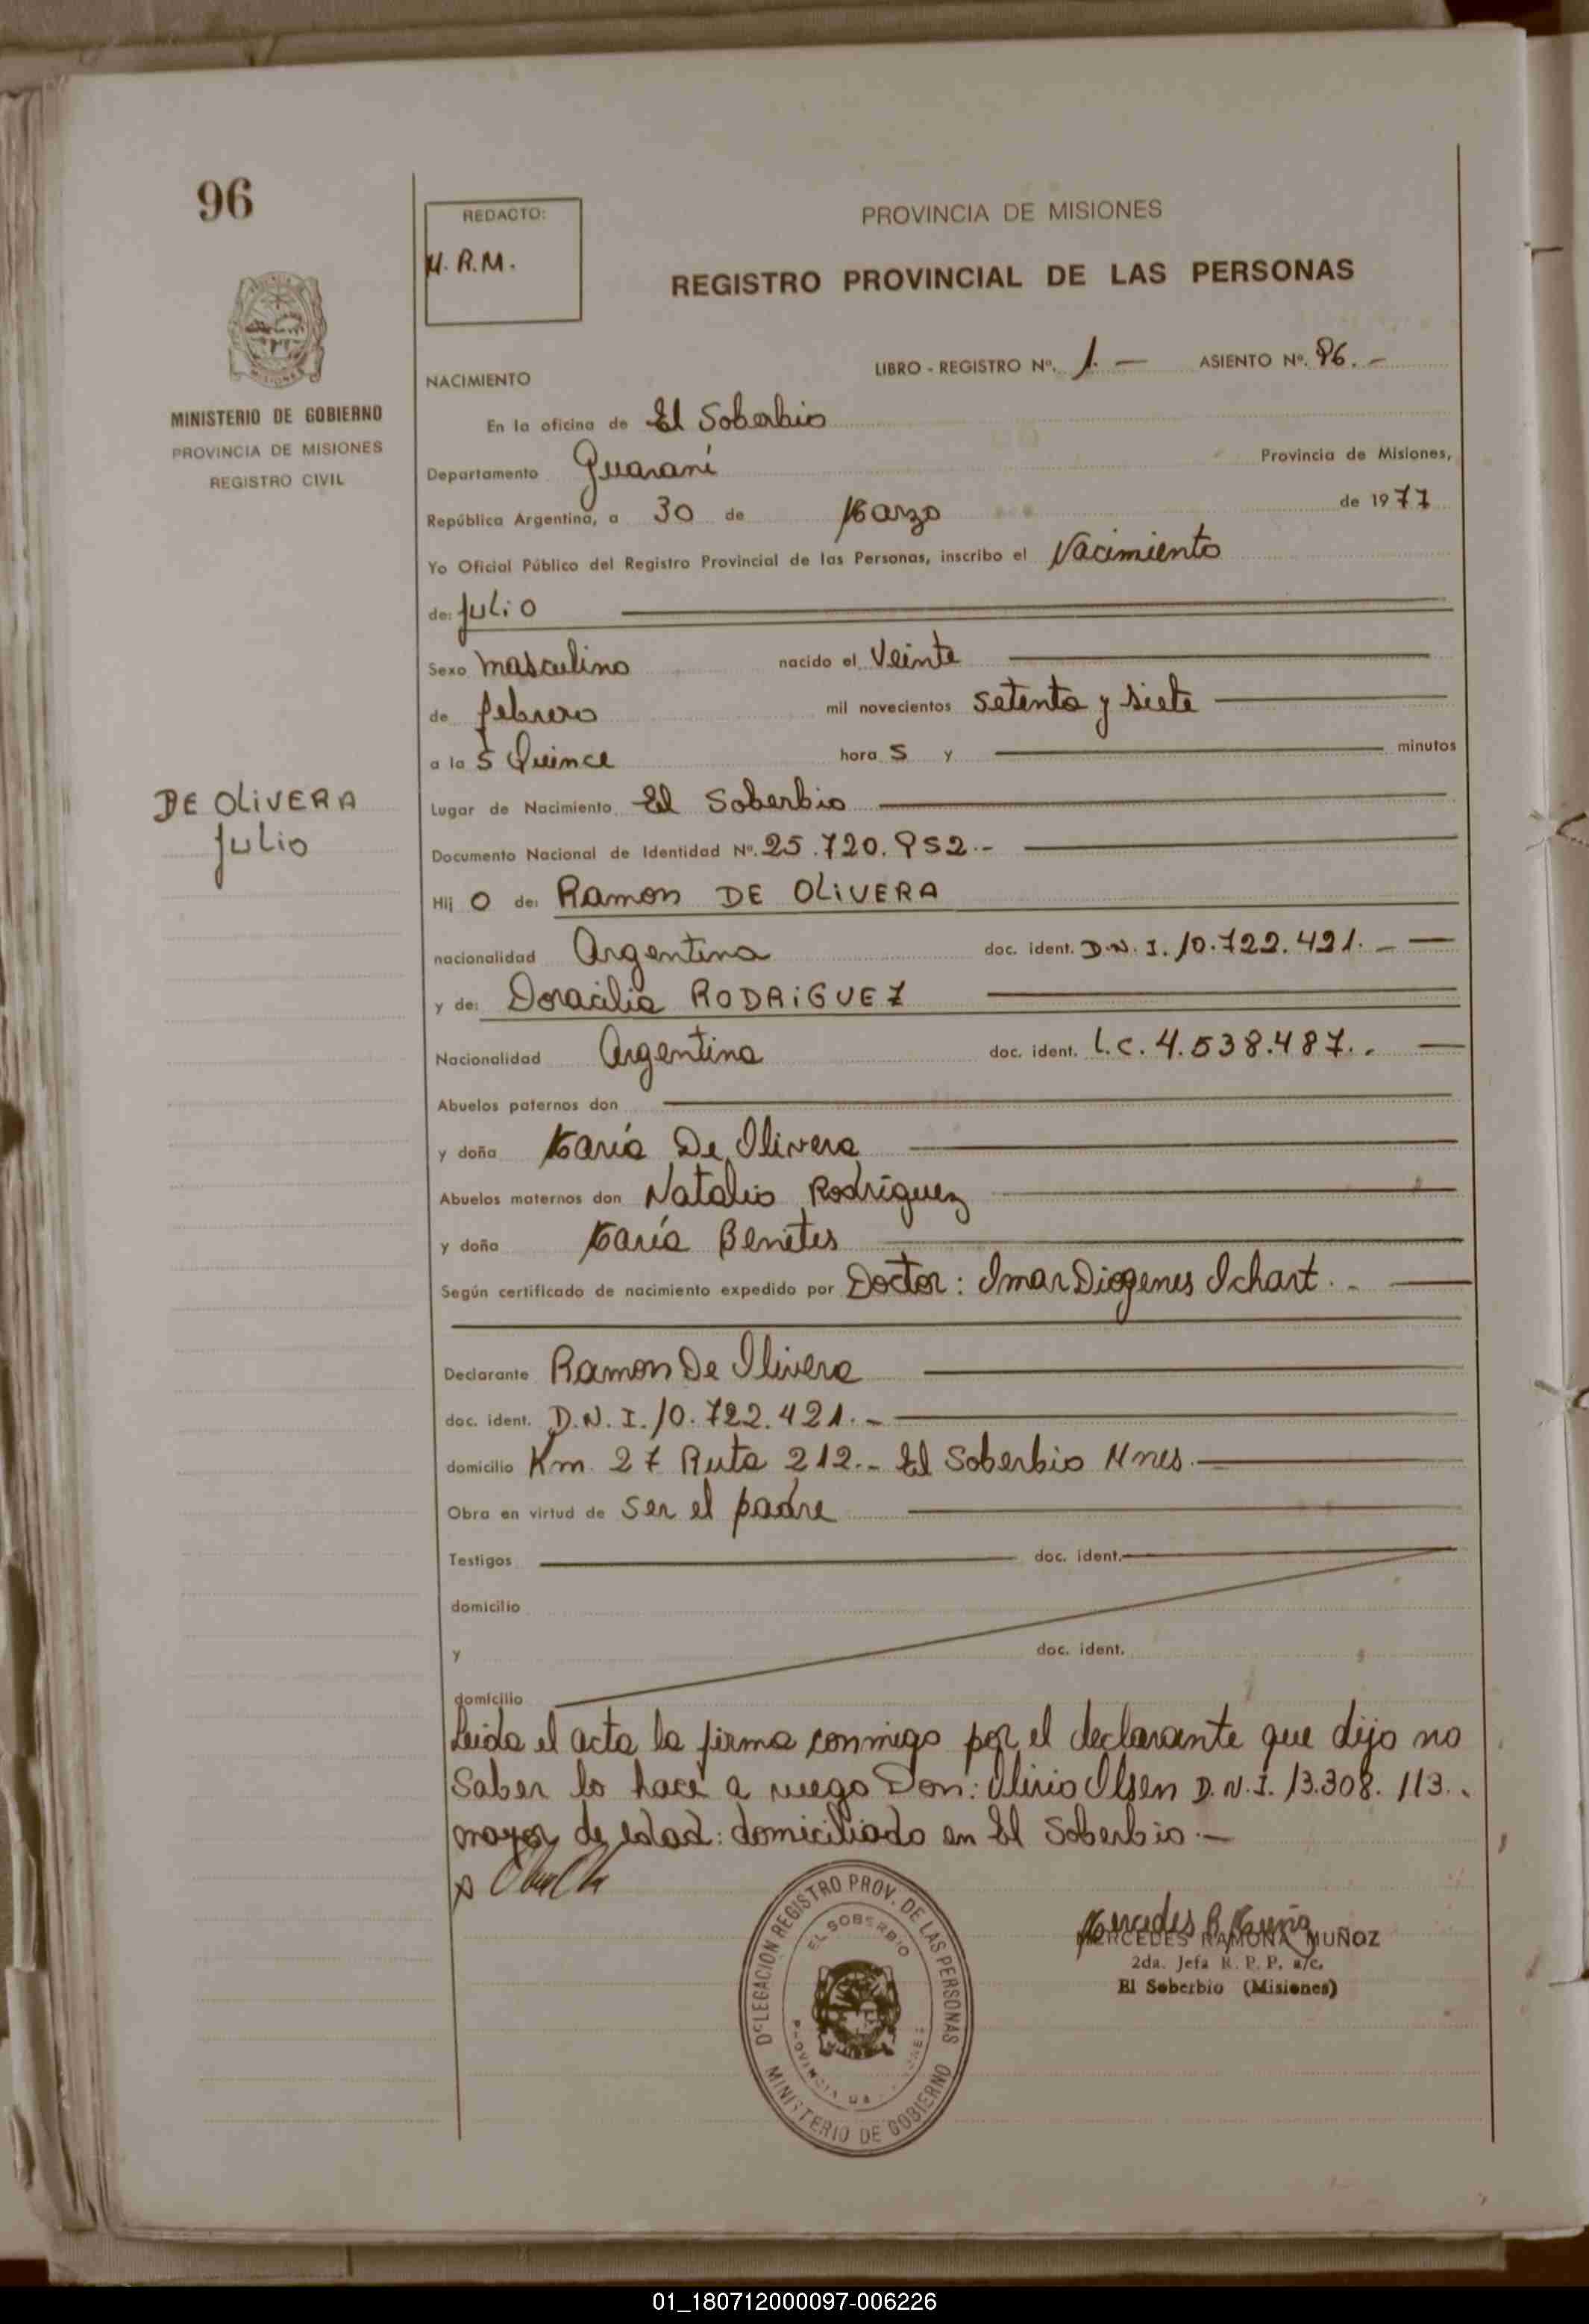 96
REDACTO:
M. R. M.
PROVINCIA DE MISIONES
REGISTRO PROVINCIAL DE LAS PERSONAS
MINISTERIO DE GOBIERNO
PROVINCIA DE MISIONES
REGISTRO CIVIL
LIBRO - REGISTRO Nº. 1. — ASIENTO Nº. 96. -
NACIMIENTO
En la oficina de El Soberbio
Departamento Guaraní Provincia de Misiones,
República Argentina, a 30 de Marzo de 1977
Yo Oficial Público del Registro Provincial de las Personas, inscribo el Nacimiento
de: Julio
Sexo masculino nacido el Veinte
de febrero mil novecientos setenta y siete
a la s Quince hora s y minutos
DE OLiVERA
Julio
Lugar de Nacimiento El Soberbio
Documento Nacional de Identidad Nº. 25.720.952.-
Hij o de: Ramon DE OLiVERA
nacionalidad Argentina doc. ident. D.N.I. 10.722.421. -
y de: Doracilia RODRiGUEZ
Nacionalidad Argentina doc. ident. L.C. 4.538.487..
Abuelos paternos don
y doña María De Olivera
Abuelos maternos don Natalio Rodríguez
y doña María Benites
Según certificado de nacimiento expedido por Doctor: Imar Diogenes Ichart. -
Declarante Ramon De Olivera
doc. ident. D.N.I. 10.722.421. -
domicilio Km. 27 Ruta 212.- El Soberbio Mnes.
Obra en virtud de ser el padre
Testigos doc. ident.
domicilio
y doc. ident.
domicilio
Leida el acta la firma conmigo por el declarante que dijo no
saber lo hace a ruego Don: Olirio Olsen D.N.I. 13.308.113..
mayor de edad: domiciliado en El Soberbio. -
DELEGACION REGISTRO PROV. DE LAS PERSONAS
EL SOBERBIO
PROVINCIA DE
MINISTERIO DE GOBIERNO
MERCEDES RAMONA MUÑOZ
2da. Jefa R. P. P. a/c.
El Soberbio (Misiones)
01_180712000097-006226